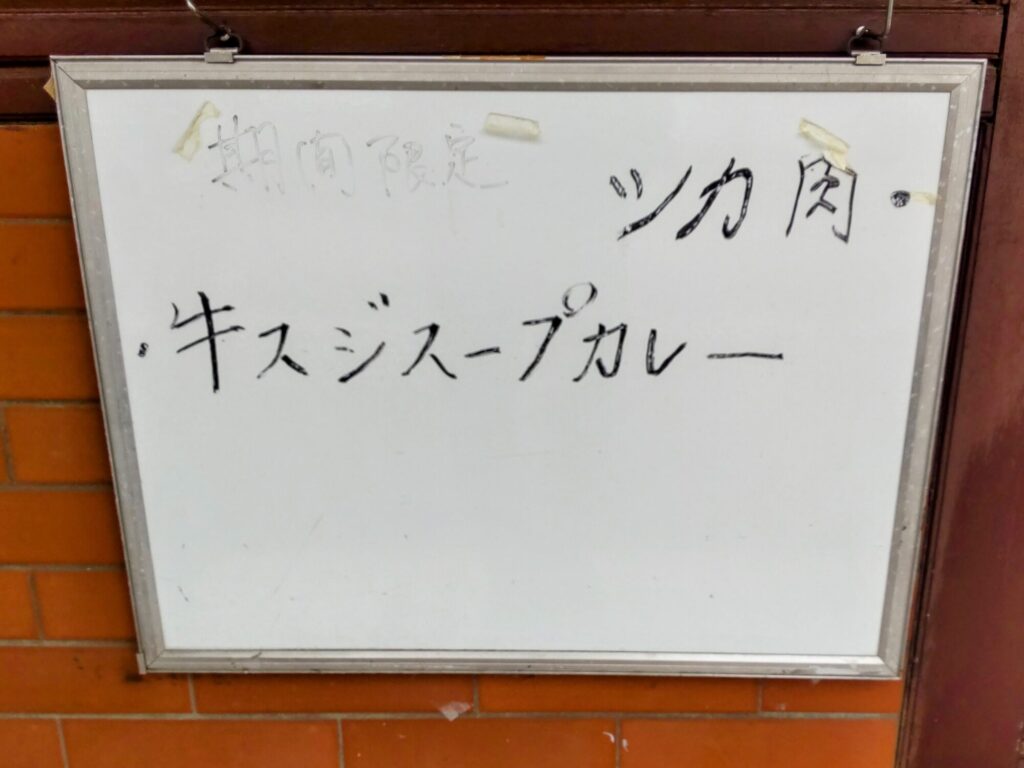 期間限定
ツカ肉・
・牛スジスープカレー